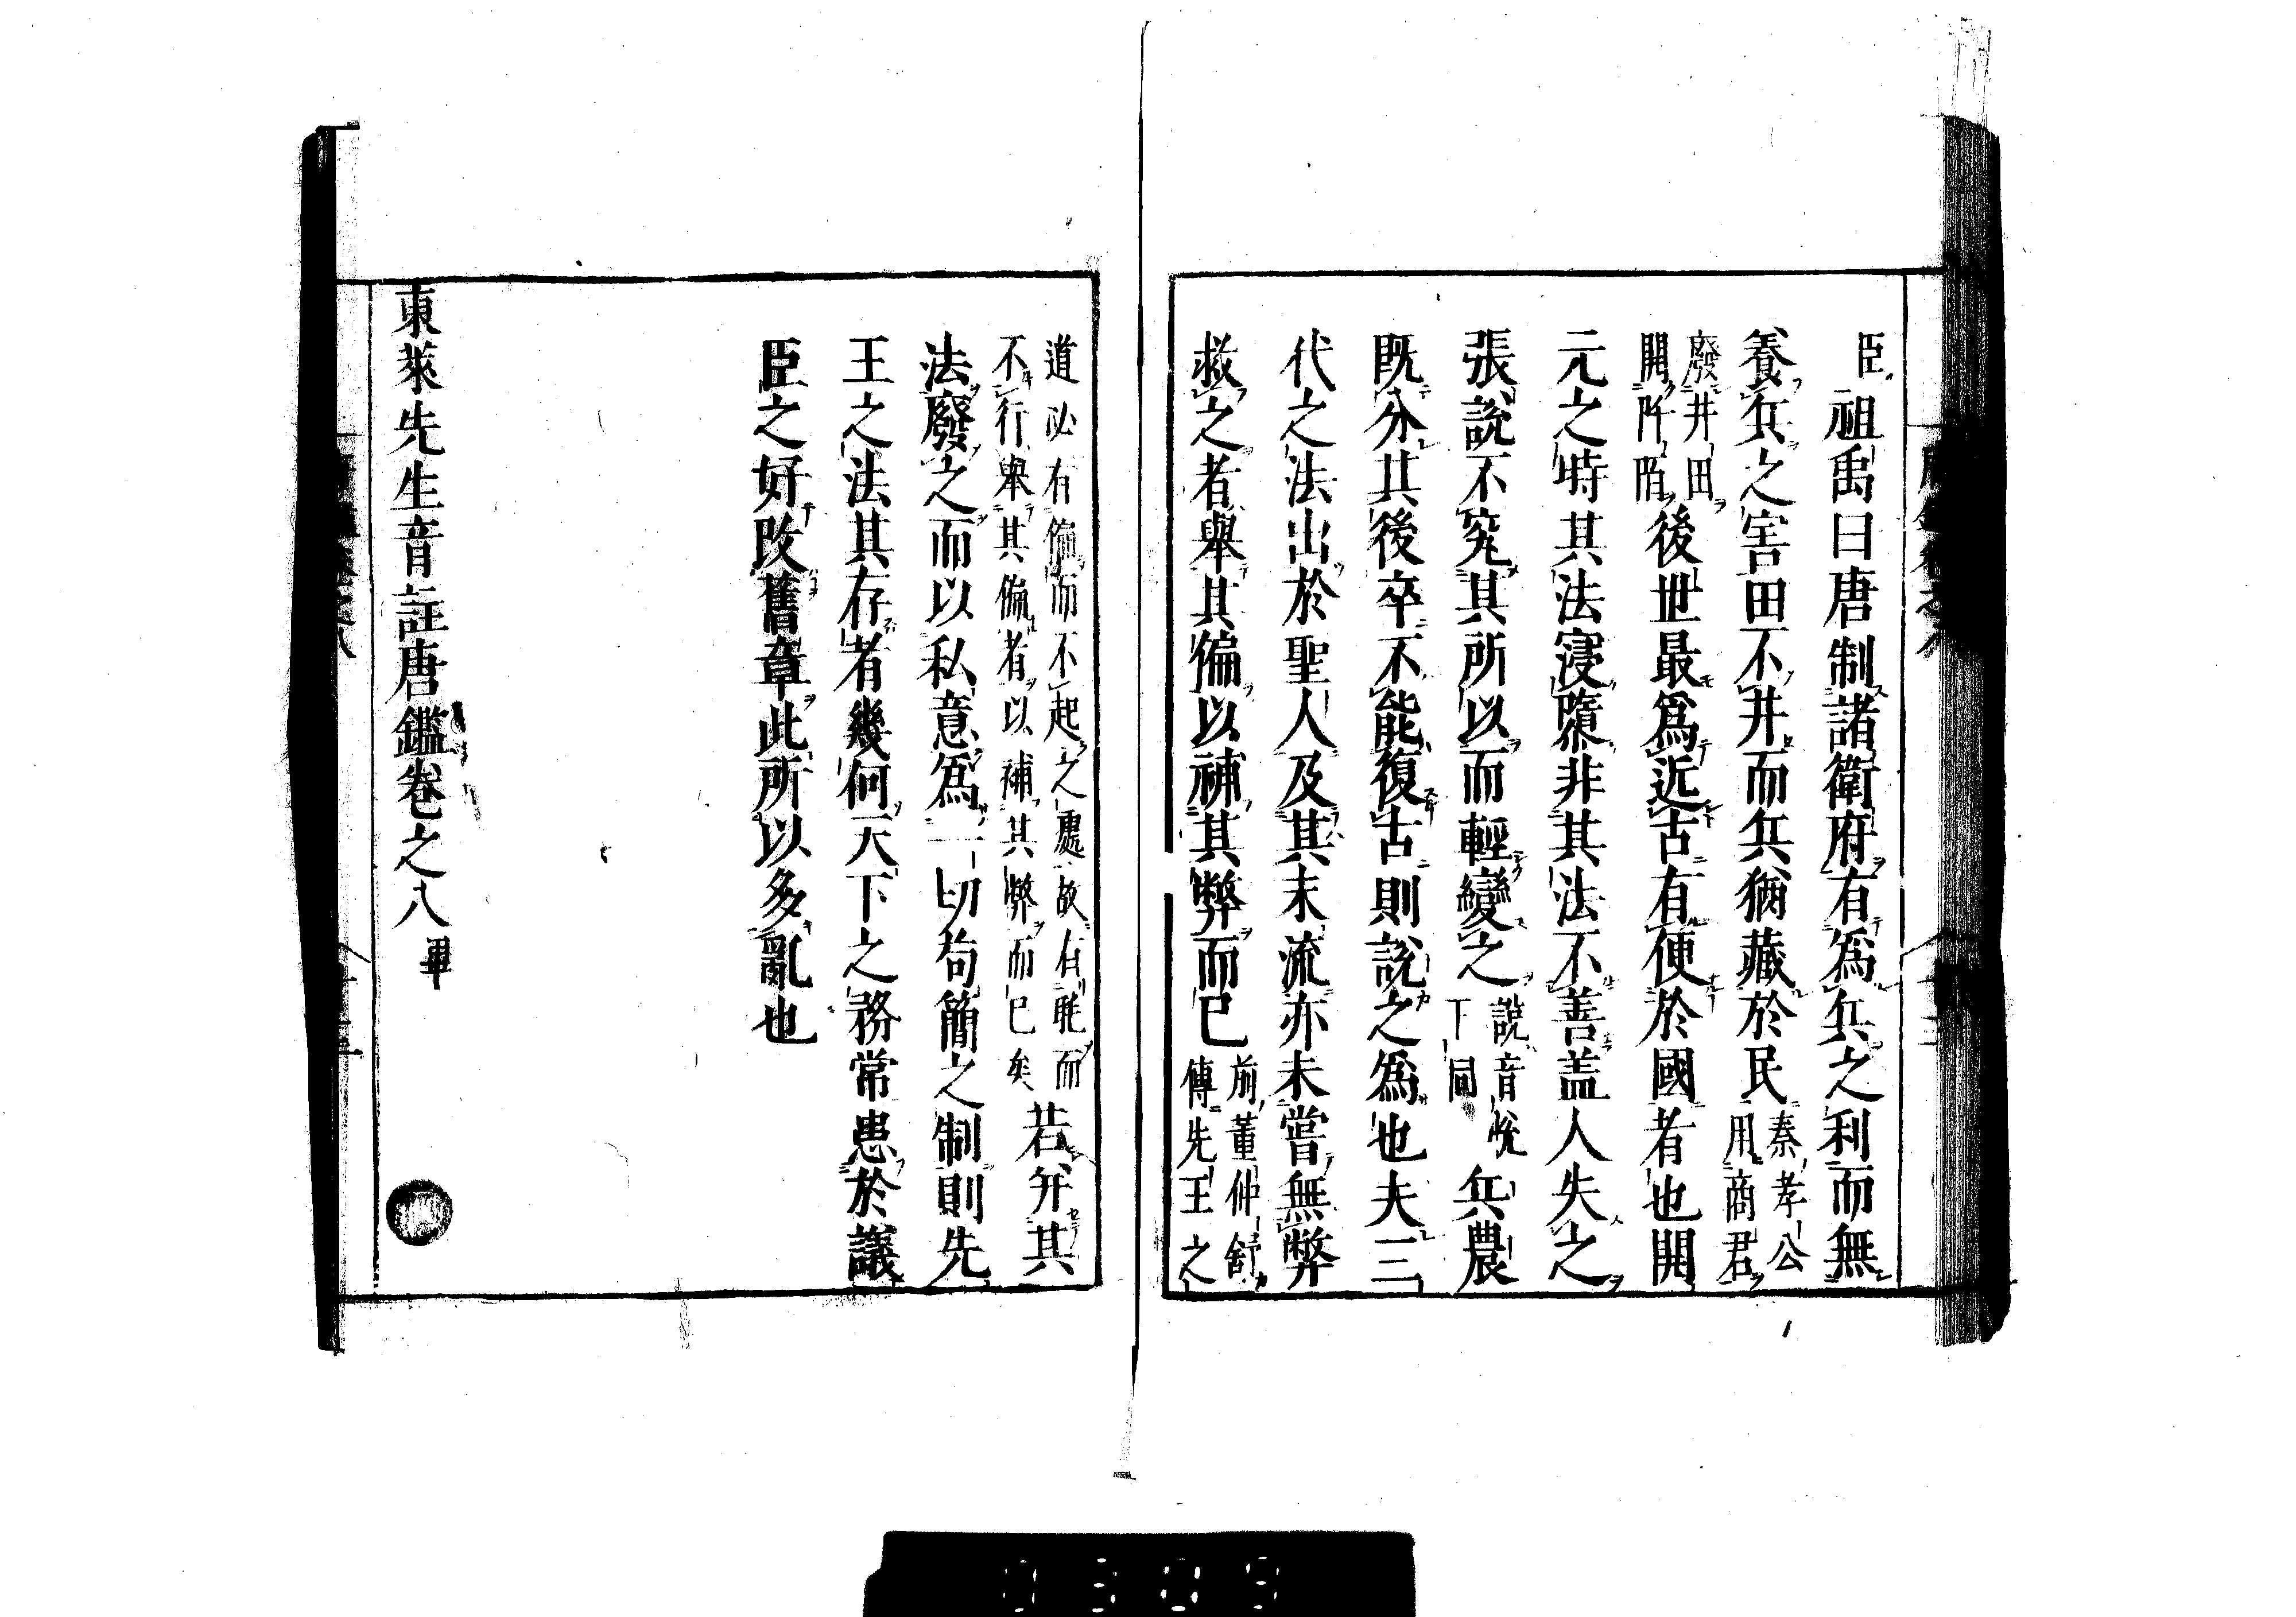 臣祖禹曰唐制諸衛府有爲兵之利而無
養兵之害田不井而兵猶藏於民秦孝公用商君
廢井田開阡陌後世最爲近古有便於國者也開
元之時其法寖隳非其法不善盖人失之
張說不究其所以而輕變之說音悅下同兵農
既分其後卒不能復古則說之爲也夫三
代之法出於聖人及其末流亦未嘗無弊
救之者舉其偏以補其弊而已前董仲舒傳先王之
道必有偏而不起之處故有眊而不行舉其偏者以補其弊而已矣若并其
法廢之而以私意爲一切苟簡之制則先
王之法其存者幾何天下之務常患於議
臣之好改舊章此所以多亂也
東萊先生音註唐鑑卷之八畢
0309